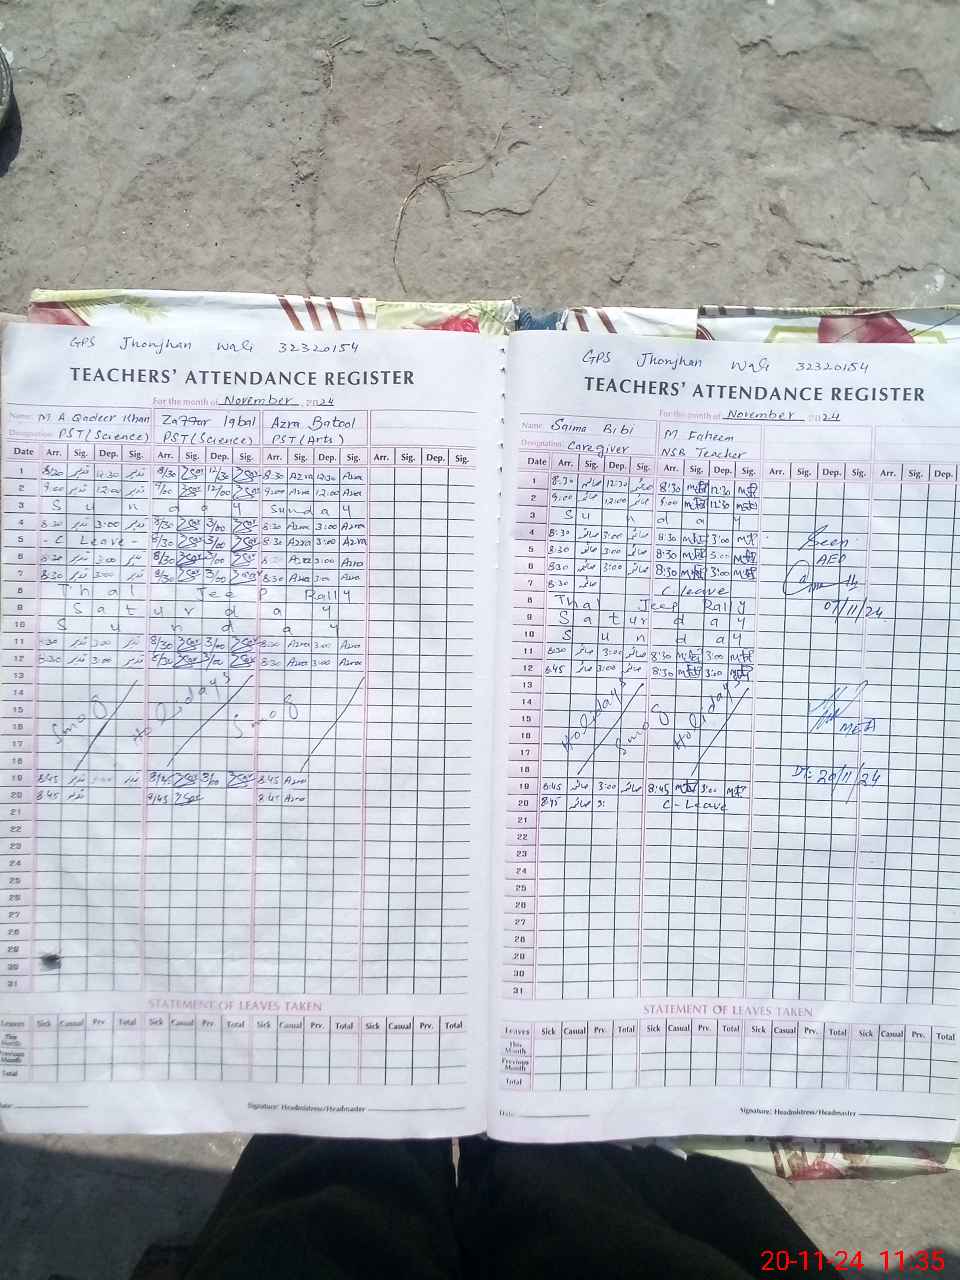 GPS Jhonjhan Wali 32320154
TEACHERS' ATTENDANCE REGISTER
For the month of November, 2024
Name: M A Qadeer Khan Zaffar Iqbal Azra Batool
Designation: PST (Science) PST (Science) PST (Arts)
Date Arr. Sig. Dep. Sig. Arr. Sig. Dep. Sig. Arr. Sig. Dep. Sig. Arr. Sig. Dep. Sig.
1 8:30 12:30 8/30 12/30 8:30 Azra 12:30 Azra
2 9:00 12:00 9/00 12/00 9:00 Azra 12:00 Azra
3 Sunday Sunday
4 8:30 3:00 8/30 3/00 8:30 Azra 3:00 Azra
5 - C Leave - 8/30 3/00 8:30 Azra 3:00 Azra
6 8:30 3:00 8/30 3/00 8:30 Azra 3:00 Azra
7 8:30 3:00 8/30 3/00 8:30 Azra 3:00 Azra
8 Thal Jeep Rally
9 Saturday
10 Sunday
11 8:30 3:00 8/30 3/00 8:30 Azra 3:00 Azra
12 8:30 3:00 8/30 3/00 8:30 Azra 3:00 Azra
13
14
15 Smog Holidays Smog
16
17
18
19 8:45 3:00 8/45 3/00 8:45 Azra
20 8:45 8/45 8:45 Azra
21
22
23
24
25
26
27
28
29
30
31
STATEMENT OF LEAVES TAKEN
Leaves Sick Casual Prv. Total Sick Casual Prv. Total Sick Casual Prv. Total Sick Casual Prv. Total
This Month
Previous Month
Total
Date:
Signature: Headmistress/Headmaster
GPS Jhonjhan Wali 32320154
TEACHERS' ATTENDANCE REGISTER
For the month of November, 2024
Name: Saima Bibi M Faheem
Designation: Caregiver NSB Teacher
Date Arr. Sig. Dep. Sig. Arr. Sig. Dep. Sig. Arr. Sig. Dep. Sig. Arr. Sig. Dep.
1 8:30 12:30 8:30 12:30
2 9:00 12:00 9:00 12:30
3 Sunday
4 8:30 3:00 8:30 3:00 Seen
5 8:30 3:00 8:30 3:00 AEO
6 8:30 3:00 8:30 3:00
7 8:30 C Leave
8 Thal Jeep Rally 07/11/24
9 Saturday
10 Sunday
11 8:30 3:00 8:30 3:00
12 8:45 3:00 8:30 3:00
13
14
15 Holidays Smog Holidays MEA
16
17
18 Dt: 20/11/24
19 8:45 3:00 8:45 3:00
20 8:45 C-Leave
21
22
23
24
25
26
27
28
29
30
31
STATEMENT OF LEAVES TAKEN
Leaves Sick Casual Prv. Total Sick Casual Prv. Total Sick Casual Prv. Total Sick Casual Prv. Total
This Month
Previous Month
Total
Date:
Signature: Headmistress/Headmaster
20-11-24 11:35